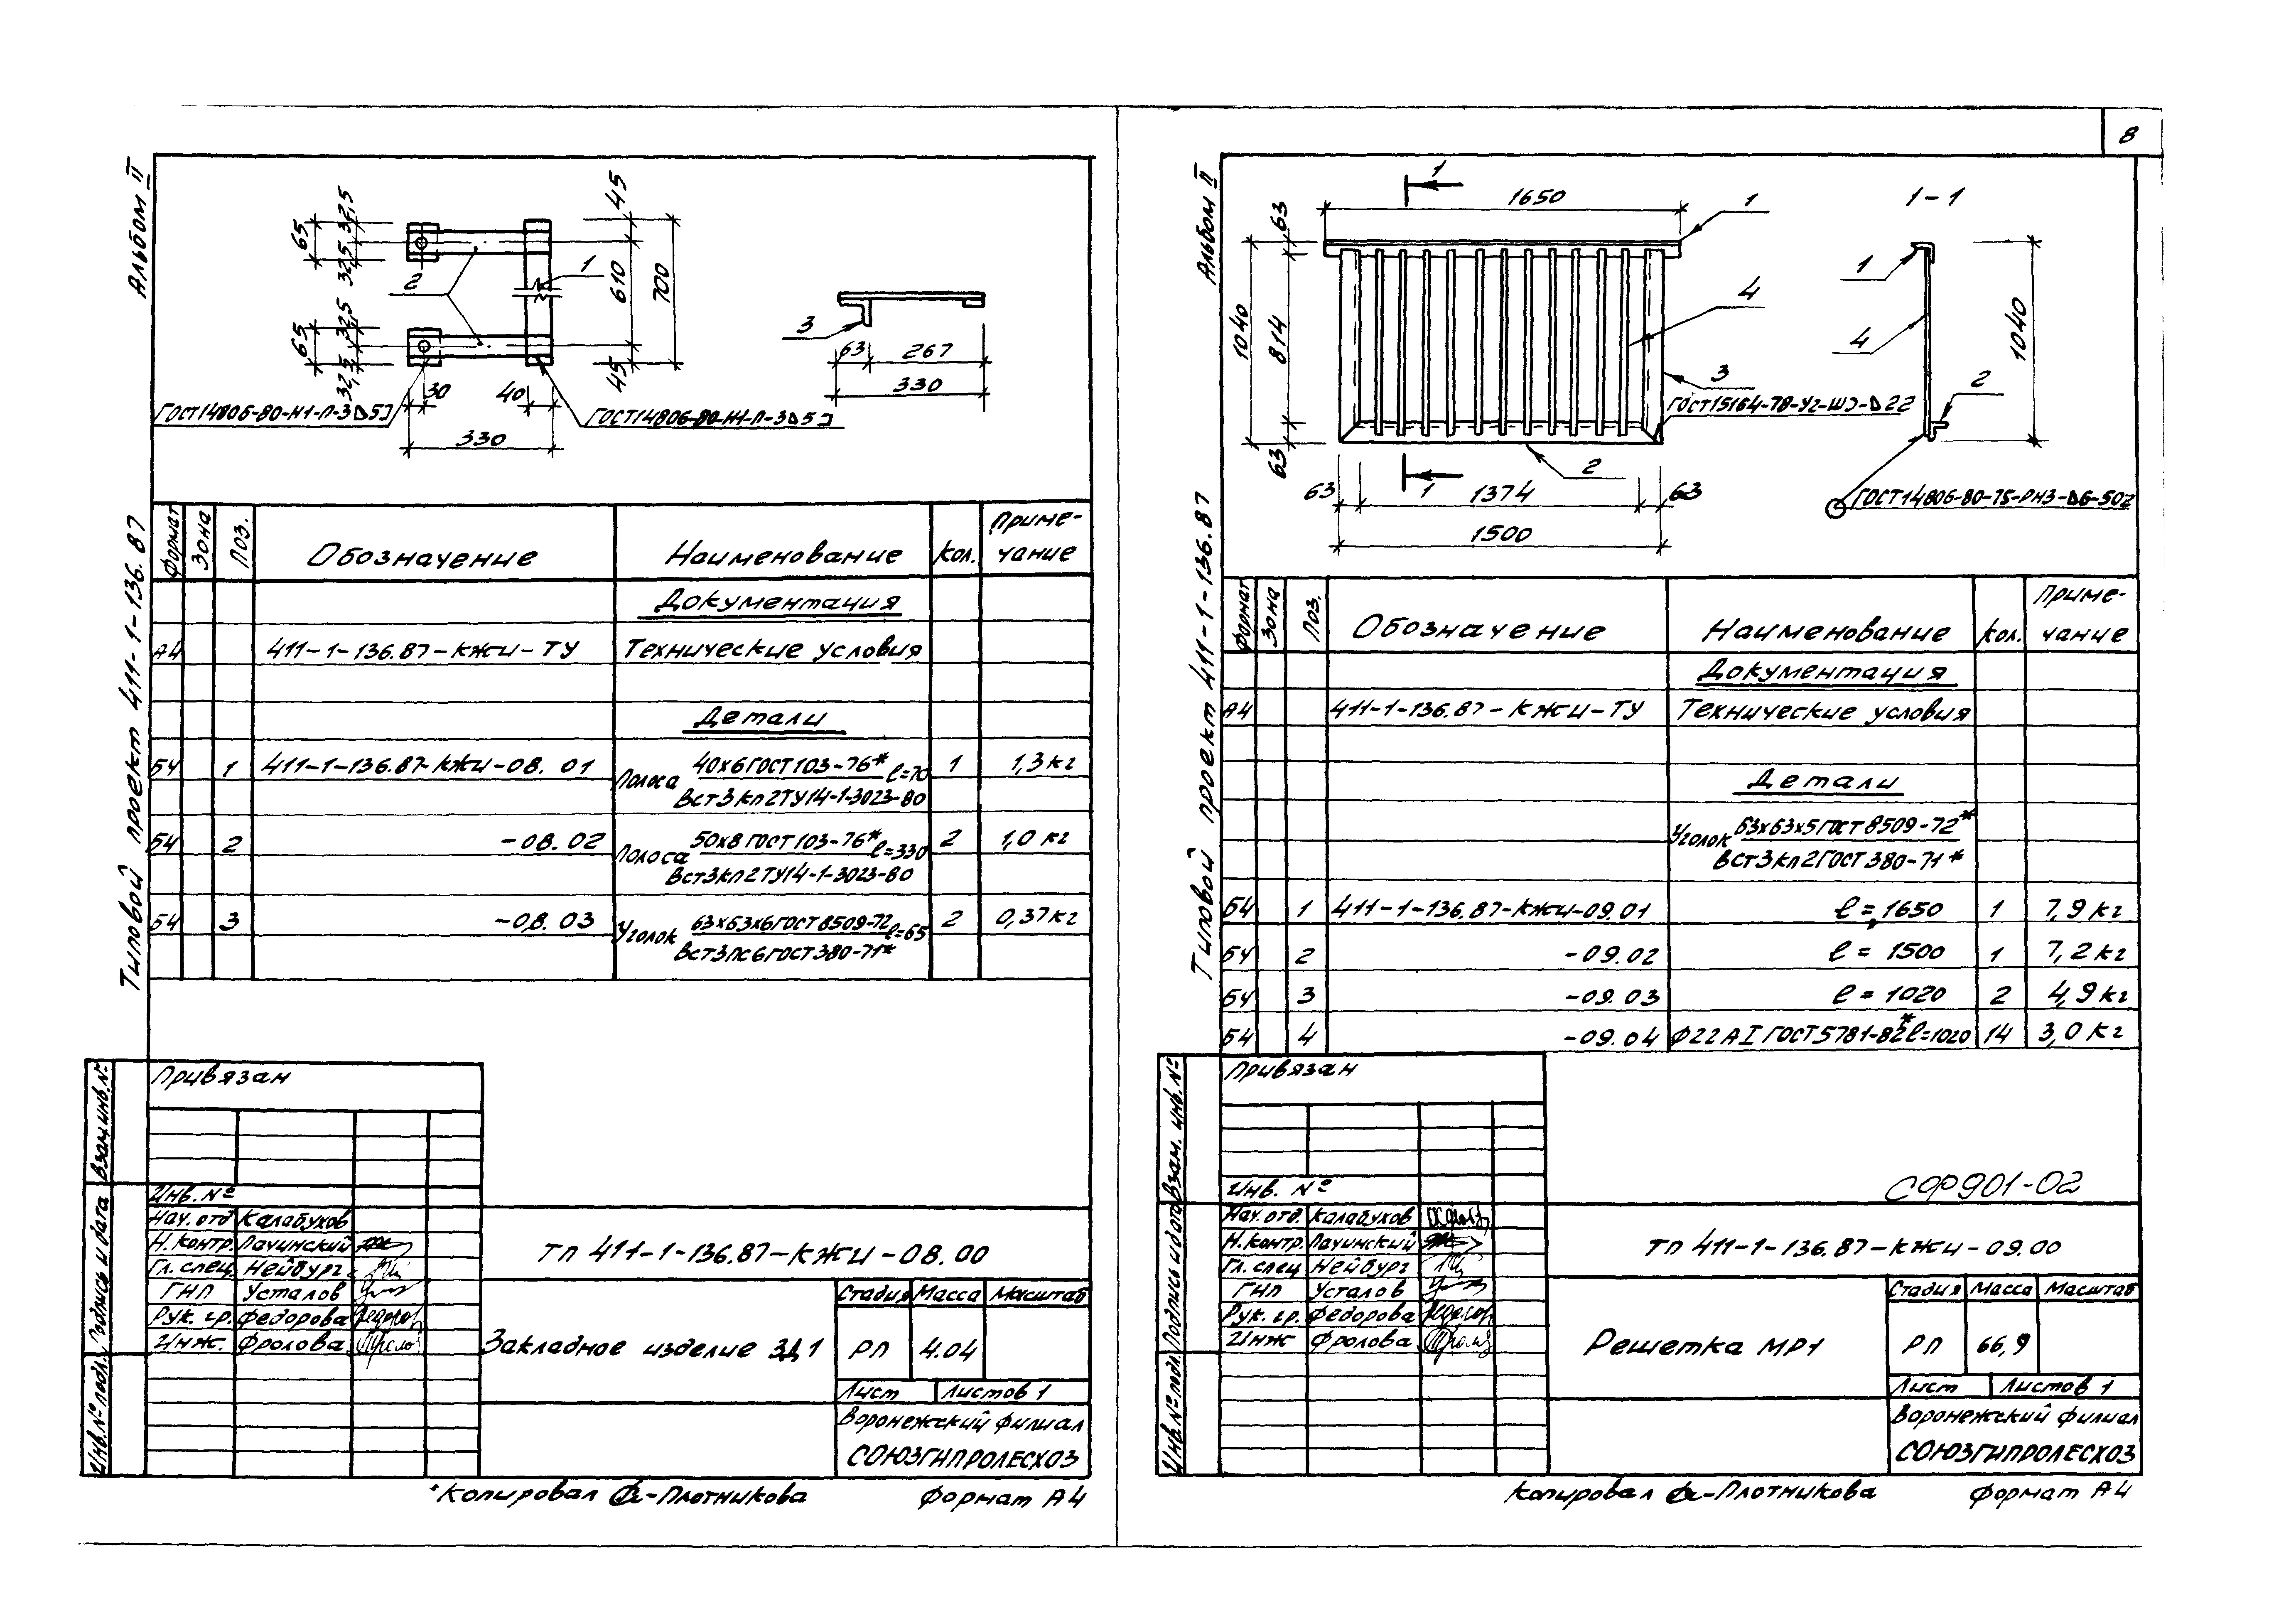 8
Альбом II
Типовой проект 411-1-136.87
65
32,5
32,5
65
32,5
32,5
45
610
700
45
1
2
30
40
330
ГОСТ14806-80-Н1-П-3Δ5
ГОСТ14806-80-Н1-П-3Δ5
3
63
267
330
Формат
Зона
Поз.
Обозначение
Наименование
Кол.
Приме-
чание
Документация
А4 411-1-136.87-КЖИ-ТУ Технические условия
Детали
БЧ 1 411-1-136.87-КЖИ-08.01 Полоса 40х6 ГОСТ 103-76* ℓ=70 1 1,3 кг
Вст3кп2ТУ14-1-3023-80
БЧ 2 -08.02 Полоса 50х8 ГОСТ 103-76* ℓ=330 2 1,0 кг
Вст3кп2ТУ14-1-3023-80
БЧ 3 -08.03 Уголок 63х63х6 ГОСТ 8509-72 ℓ=65 2 0,37 кг
Вст3пс6 ГОСТ 380-71*
Привязан
Инв. №
Взам. инв. №
Подпись и дата
Инв. № подл.
Нач. отд Калабухов
Н. контр. Лачинский
Гл. спец. Нейбург
ГИП Усталов
Рук. гр. Федорова
Инж. Фролова
ТП 411-1-136.87-КЖИ-08.00
Закладное изделие ЗД1
Стадия Масса Масштаб
РП 4.04
Лист Листов 1
Воронежский филиал
СОЮЗГИПРОЛЕСХОЗ
Копировал -Плотникова Формат А4
Альбом II
Типовой проект 411-1-136.87
1
1650
1
63
1040
814
63
4
3
ГОСТ15164-78-У2-ШЭ-Δ22
2
63
1
1374
63
1500
1-1
1
4
2
1040
ГОСТ14806-80-Т5-РН3-Δ6-50Z
Формат
Зона
Поз.
Обозначение
Наименование
Кол.
Приме-
чание
Документация
А4 411-1-136.87-КЖИ-ТУ Технические условия
Детали
Уголок 63х63х5 ГОСТ 8509-72*
Вст3кп2 ГОСТ 380-71*
БЧ 1 411-1-136.87-КЖИ-09.01 ℓ=1650 1 7,9 кг
БЧ 2 -09.02 ℓ=1500 1 7,2 кг
БЧ 3 -09.03 ℓ=1020 2 4,9 кг
БЧ 4 -09.04 Ф22 АI ГОСТ 5781-82* ℓ=1020 14 3,0 кг
Привязан
Инв. №
Взам. инв. №
Подпись и дата
Инв. № подл.
СФ901-02
Нач. отд. Калабухов
Н. контр. Лачинский
Гл. спец Нейбург
ГИП Усталов
Рук. гр. Федорова
Инж Фролова
ТП 411-1-136.87-КЖИ-09.00
Решетка МР1
Стадия Масса Масштаб
РП 66,9
Лист Листов 1
Воронежский филиал
СОЮЗГИПРОЛЕСХОЗ
Копировал -Плотникова Формат А4